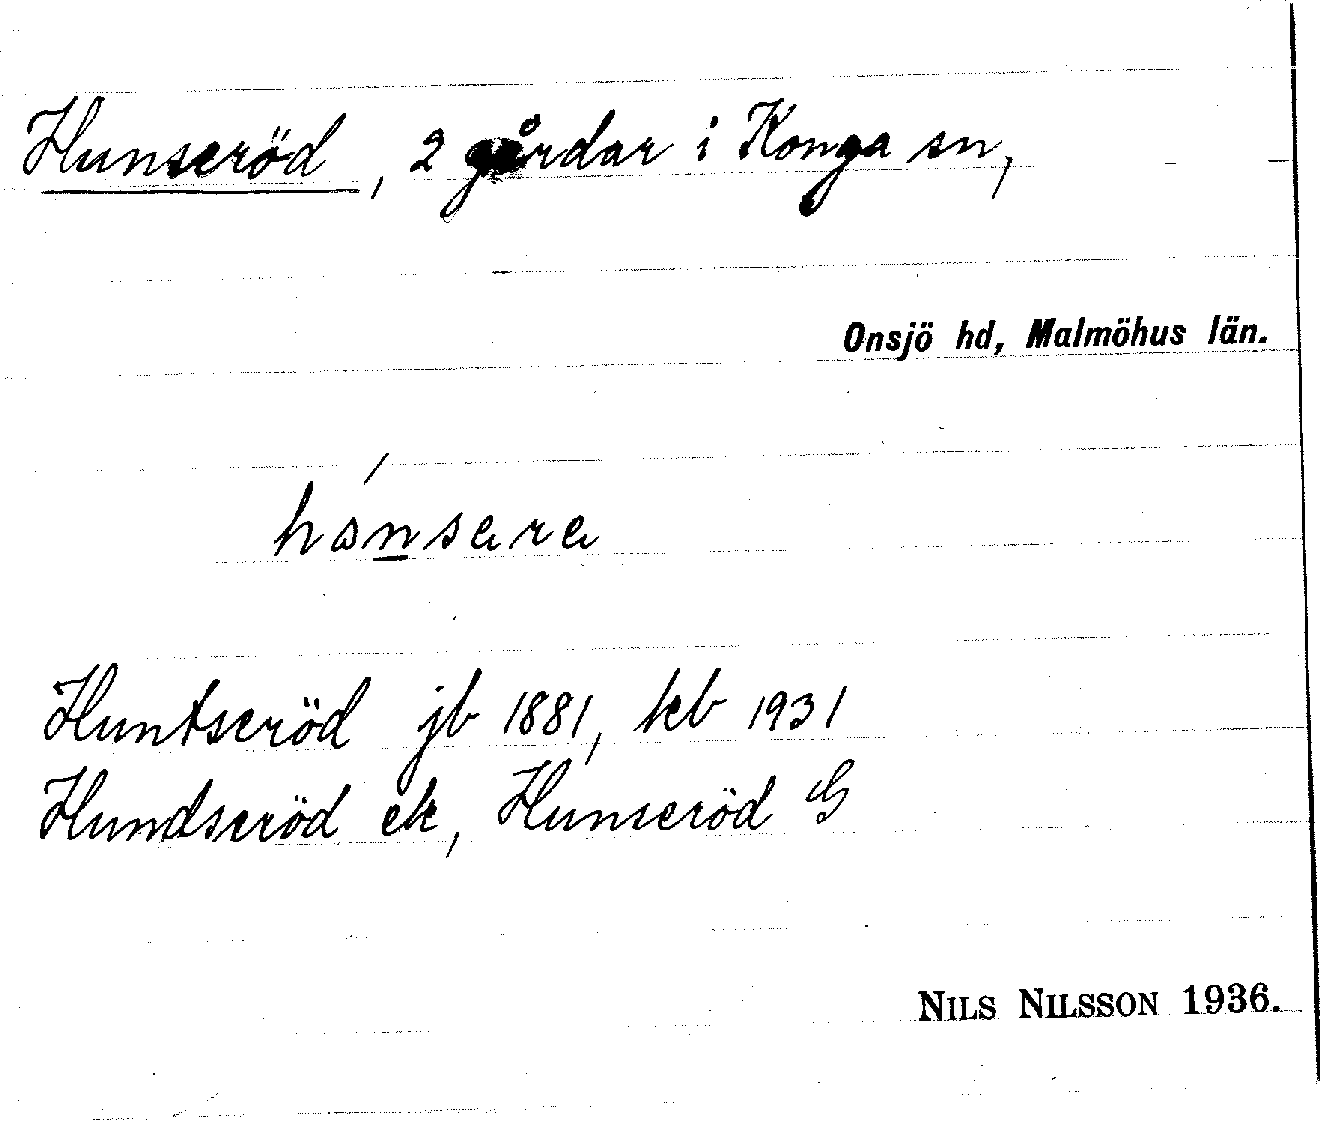 Hunseröd, 2 gårdar i Konga sn,
Onsjö hd, Malmöhus län.
Huntseröd jb 1881, kb 1931
Hundseröd ek, Hunseröd G
NILS NILSSON 1936.